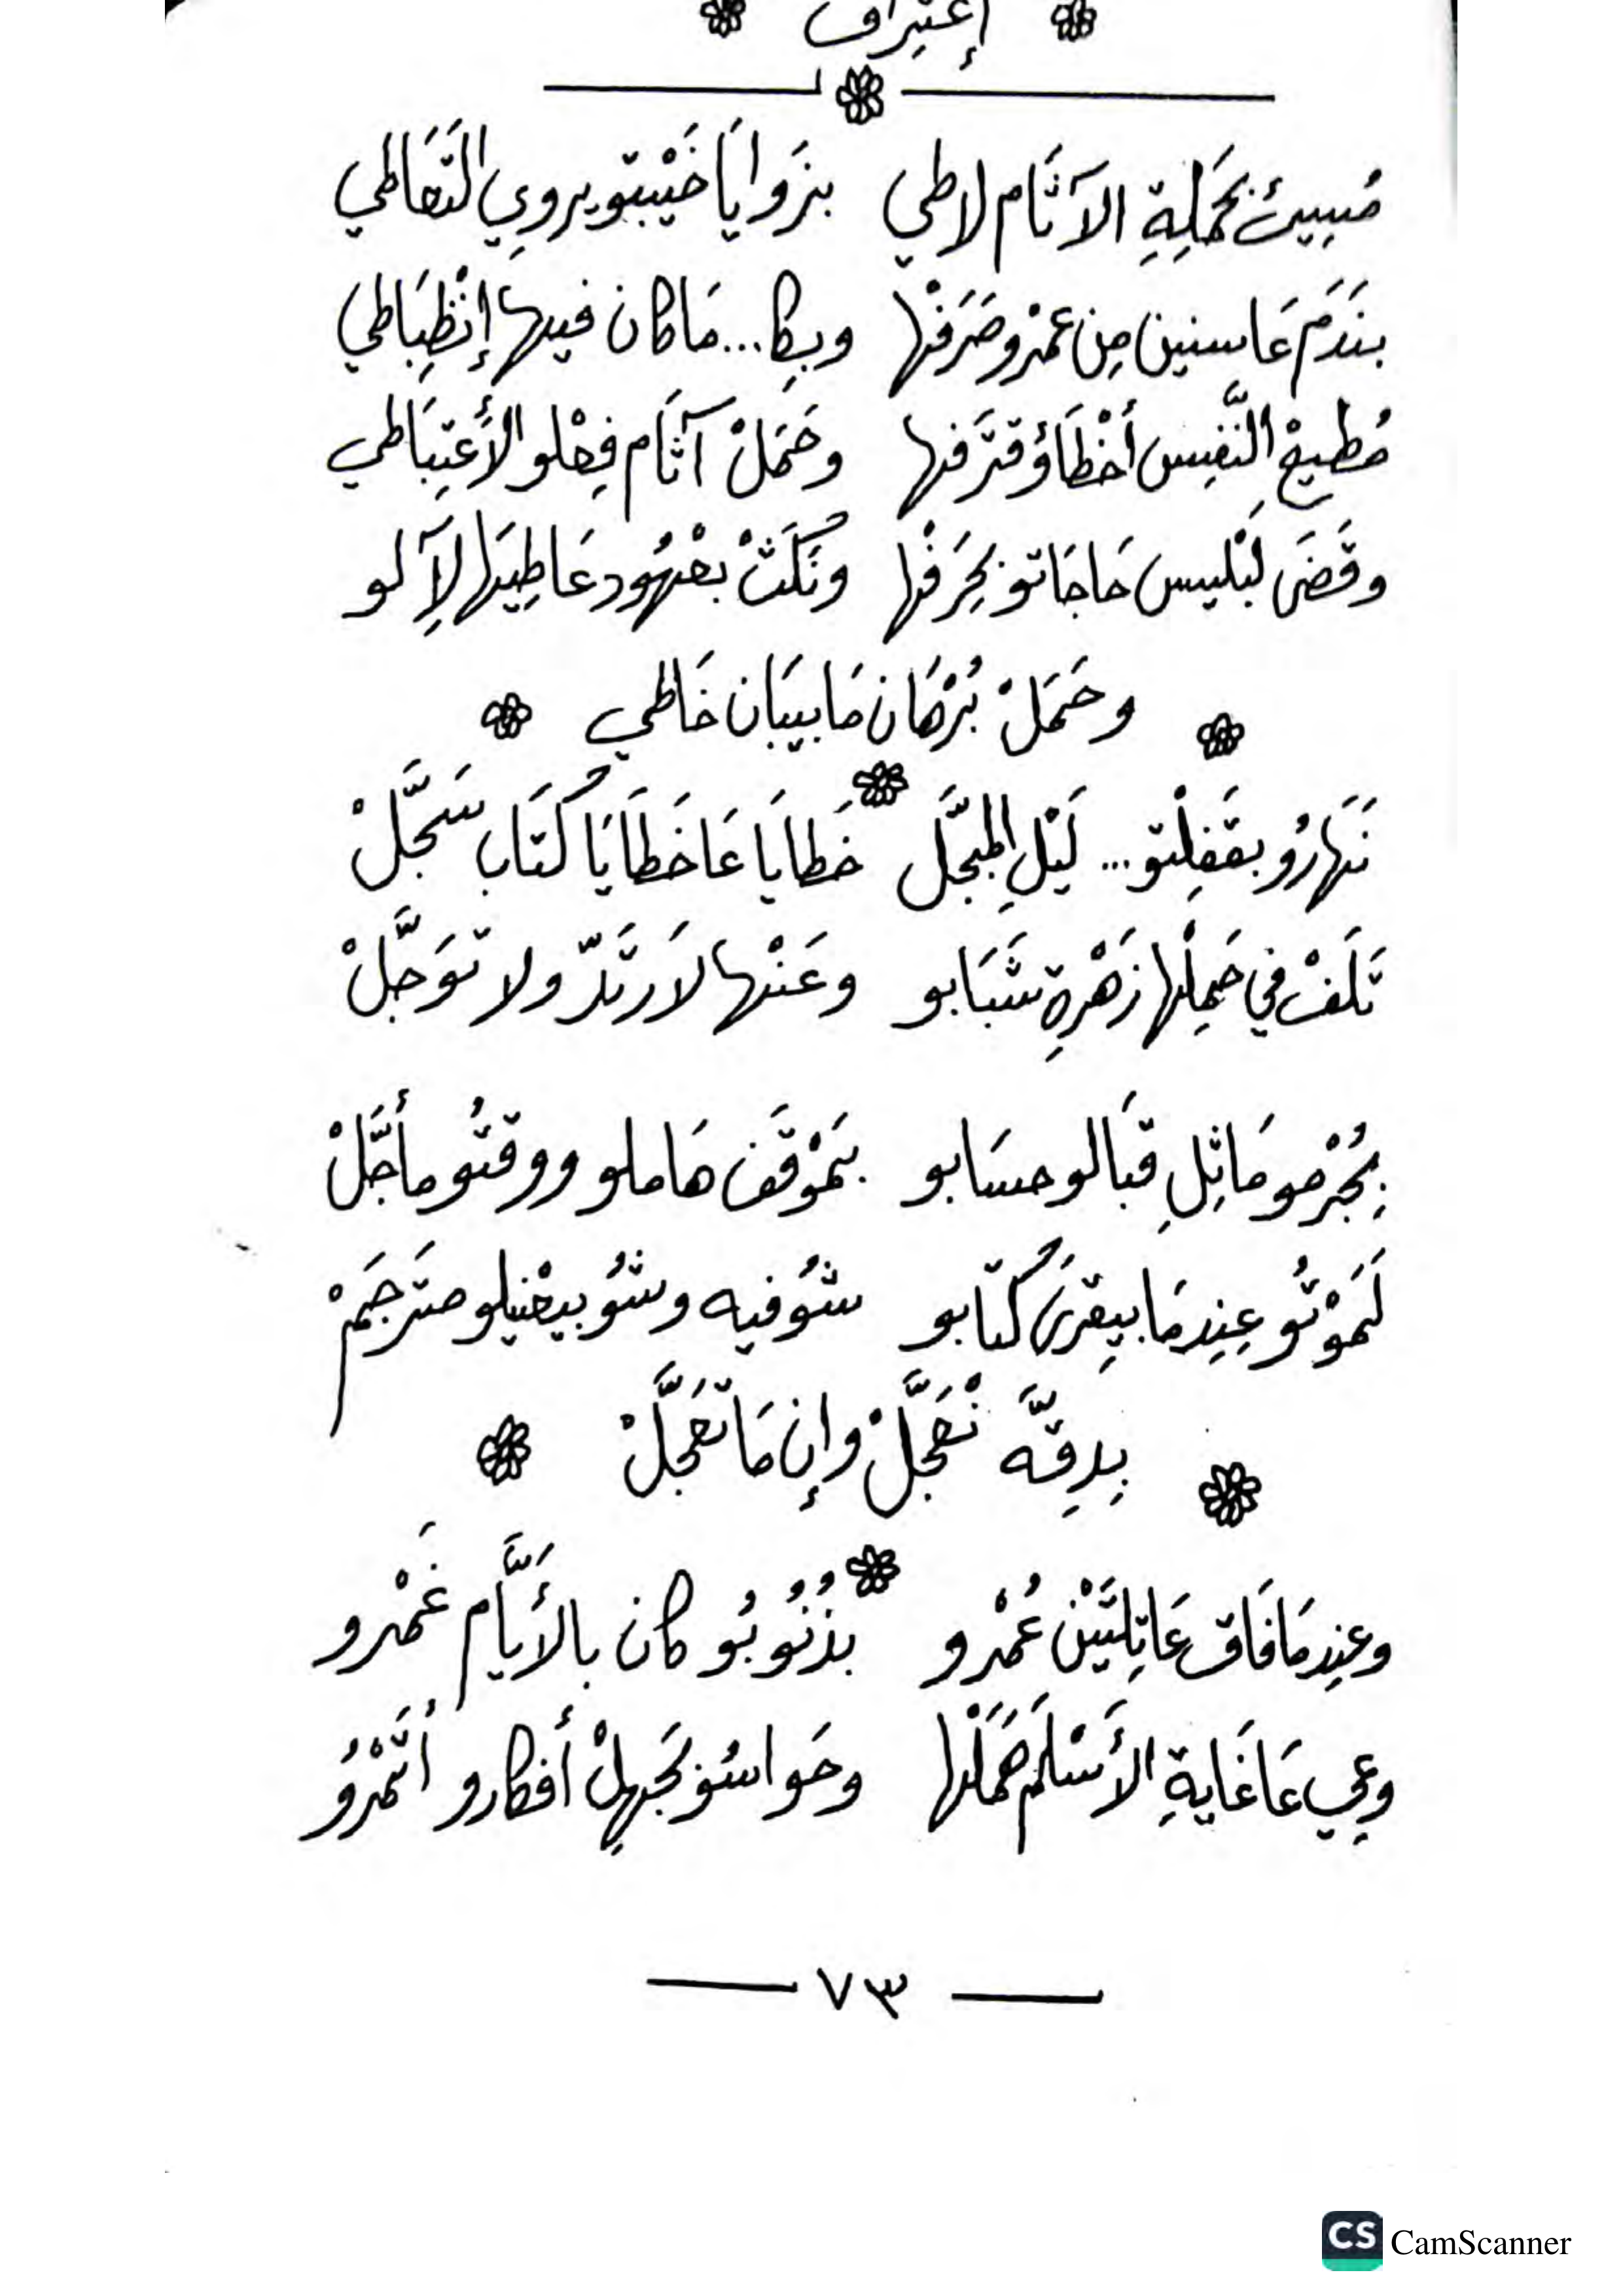 إعتراف
مُسِيئ بحَملِةِ الآثَام لاطي بزَوايَا خَيْبتو يروِي التَعَاطي
بنَدَم عَاسنين مِن عمْرو صَرَفْها وبِكا... مَا كان فيها إنْظِبَاطي
مُطيعْ النَّفِس أخْطَاؤ قتَرَفها وحَمَلْ آثَام فِعْلو الأَعتِبَاطي
وقَضَى لبْليس حَاجَاتو بحِرَفْها ونَكَثْ بعْهُود عَاطِيَها لِآلو
وحَمَلْ بُرْهَان مَا بيبَان خَاطي
نَهَارُو بغَفِلْتو... لَيْلِ المبجَّل خَطايَا عَا خَطَايَا كُتَاب سَجَّلْ
تَلَفْ في حَمِلْها زَهْرةِ شَبَابو وعَنْها لاَرتَدّ ولا توَجَّلْ
بِجُرْمو مَاثِلِ قبَالو حسَابو بمَوْقَف هَاملو ووقتُو مأجَّلْ
لَمَوْتُو عِنِدمَا بيِقرى كُتابو شوُ فيه وشوُ بيعْنيلو مترَجَمْ
بِدِقَّه نْعَجَّلْ وإن مَا تعَجَّلْ
وعنِدمَا فَاق عَاتِلتَيْن عُمْرو بذُنُوبُو كان بالأَيَّام غَمْرو
وعِي عَاغَايةِ الأَسْلَم حَمَلْها وحَواسُو بجَهِلْ أفكارو أتَمْرُو
٧٣
CS CamScanner